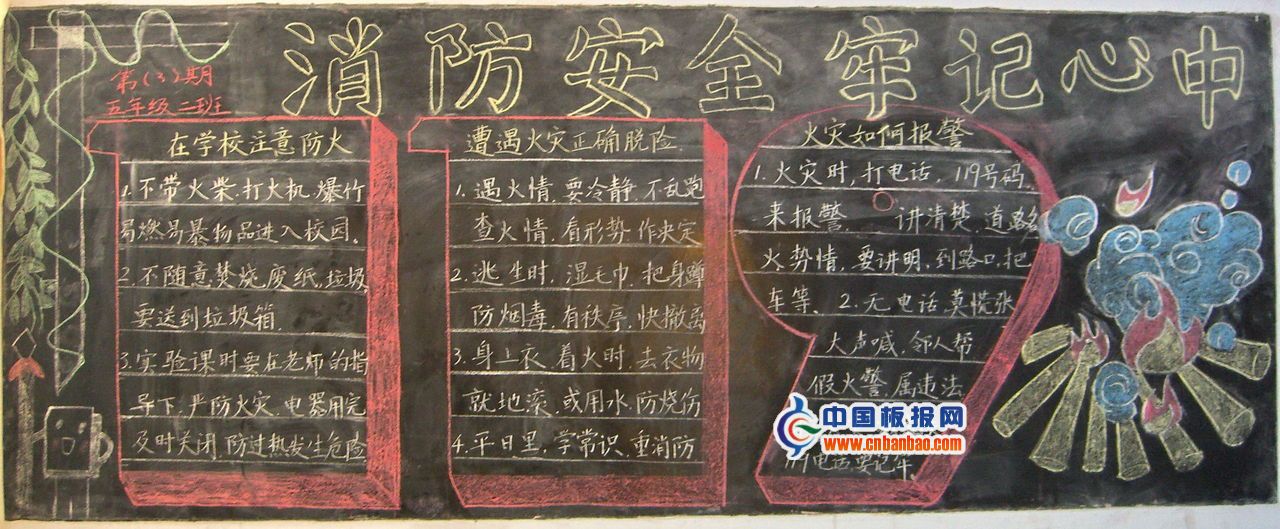 消防安全牢记心中
第(3)期
五年级二班
在学校注意防火
1.不带火柴.打火机.爆竹
易燃易暴物品进入校园。
2.不随意焚烧废纸,垃圾
要送到垃圾箱.
3.实验课时要在老师的指
导下,严防火灾,电器用完
及时关闭,防过热发生危险
遭遇火灾正确脱险.
1.遇火情,要冷静,不乱跑
查火情,看形势,作决定
2.逃生时,湿毛巾,把身蹲
防烟毒,有秩序,快撤离
3.身上衣,着火时,去衣物
就地滚,或用水,防烧伤
4.平日里,学常识,重消防
火灾如何报警
1.火灾时,打电话,119号码.
来报警. 讲清楚,道路名
火势情,要讲明,到路口,把
车等、2.无电话,莫慌张
大声喊,邻人帮
假火警,属违法
电话要记牢.
中国板报网
www.cnbanbao.com